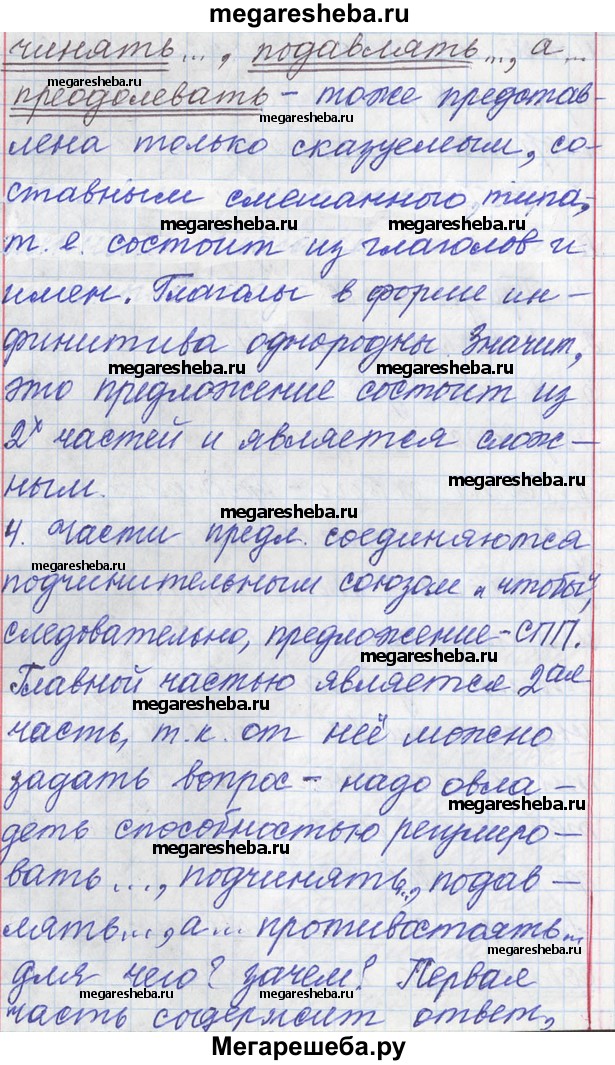 megaresheba.ru
чинять..., подавлять..., а...
megaresheba.ru
преодолевать - тоже представ-
megaresheba.ru
лена только сказуемым, со-
ставным смешанного типа,
megaresheba.ru megaresheba.ru
т. е. состоит из глаголов и
имен. Глаголы в форме ин-
финитива однородны. Значит,
megaresheba.ru megaresheba.ru
это предложение состоит из
2х частей и является слож-
megaresheba.ru
ным.
megaresheba.ru
4. Части предл. соединяются
megaresheba.ru
подчинительным союзом „чтобы",
следовательно, предложение - СПП.
megaresheba.ru
Главной частью является 2ая
megaresheba.ru
часть, т. к. от неё можно
задать вопрос - надо овла-
megaresheba.ru
деть способностью регулиро-
megaresheba.ru
вать ..., подчинять..., подав-
лять..., а... противостоять...
для чего? зачем? Первая
megaresheba.ru megaresheba.ru
часть содержит ответ,
Мегарешеба.ру